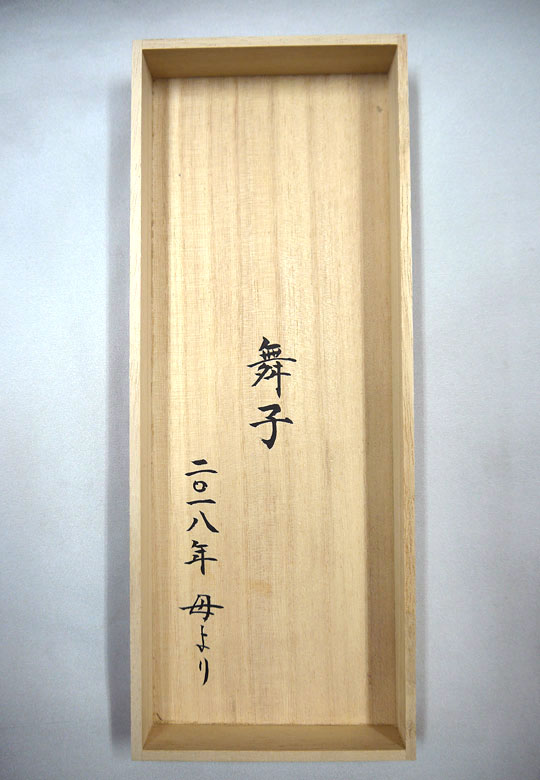 舞子
二〇一八年 母より